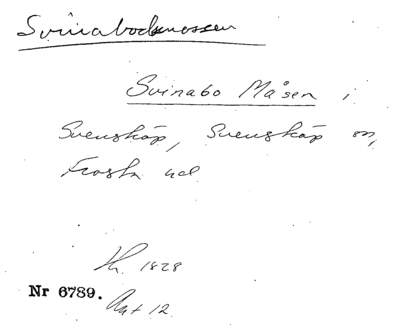 Svinabodsmossen
Svinabo Måsen i
Svensköp, Svensköp sn,
Frosta hd
1828
Nr 6789.
Akt 12